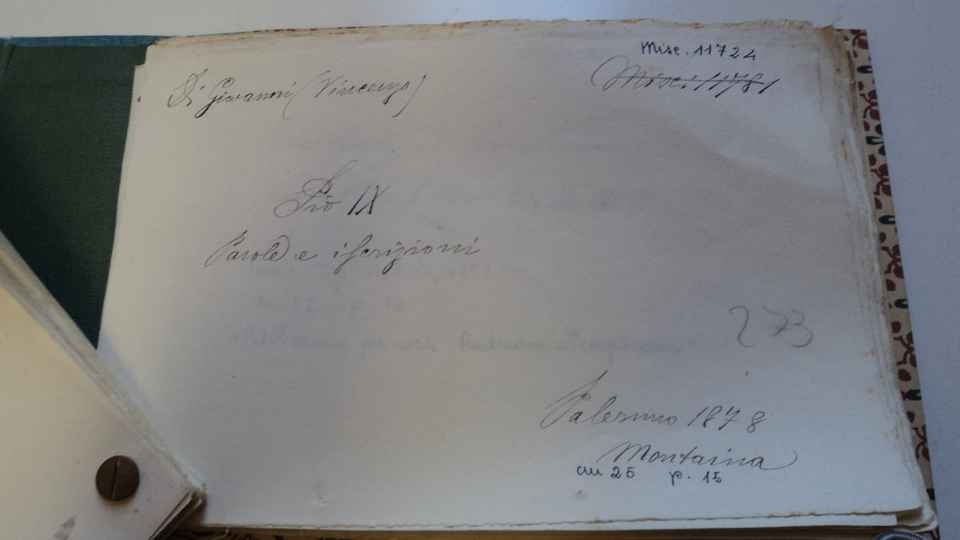 Misc. 11724
Misc. 11781
Di Giovanni (Vincenzo)
Pio IX
Parole e iscrizioni
273
Palermo 1878
Montaina
cm 25 p. 15